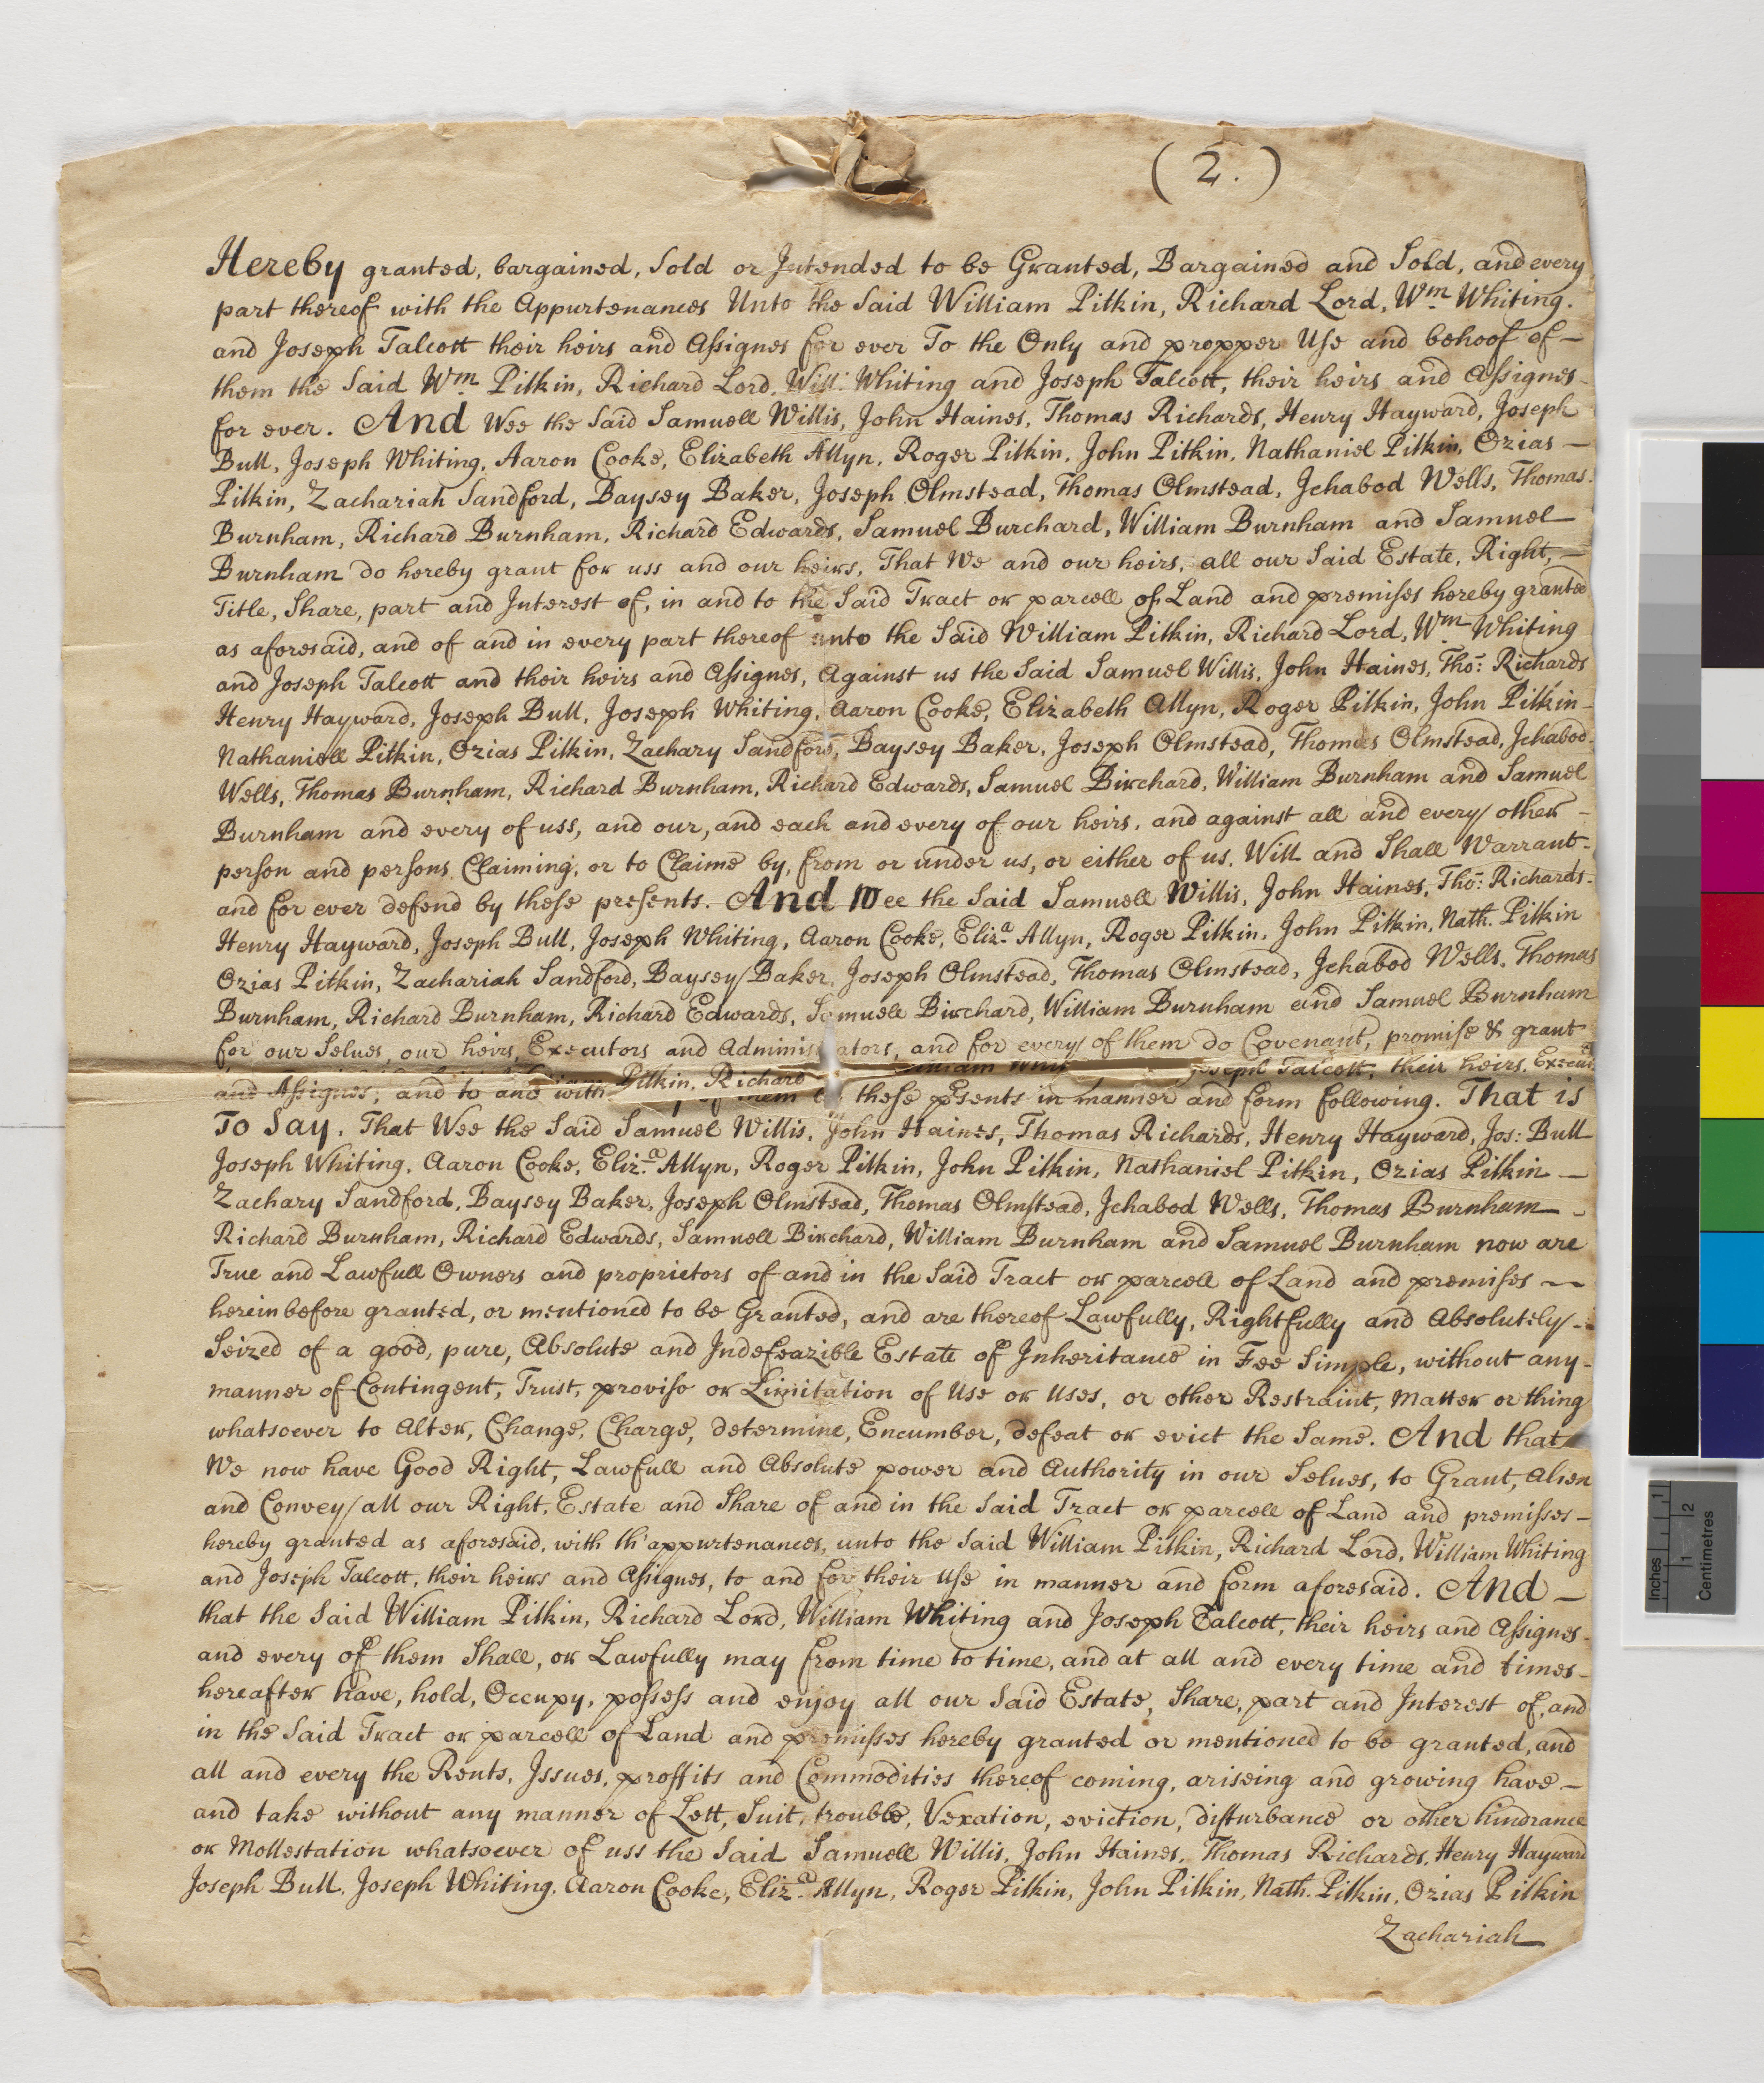 (2.)
Hereby granted, bargained, Sold or Intended to be Granted, Bargained and Sold, and every
part thereof with the Appurtenances Unto the Said William Pitkin, Richard Lord, Wm Whiting.
and Joseph Talcott their heirs and Assignes for ever To the Only and propper Use and behoof of —
them the Said Wm Pitkin, Richard Lord, Will: Whiting and Joseph Talcott, their heirs and Assignes -
for ever. And Wee the Said Samuell Willis, John Haines, Thomas Richards, Henry Hayward, Joseph
Bull, Joseph Whiting, Aaron Cooke, Elizabeth Allyn, Roger Pitkin, John Pitkin, Nathaniel Pitkin, Ozias —
Pitkin, Zachariah Sandford, Baysey Baker, Joseph Olmstead, Thomas Olmstead, Jchabod Wells, Thomas
Burnham, Richard Burnham, Richard Edwards, Samuel Burchard, William Burnham and Samuel
Burnham do hereby grant for uss and our heirs, That We and our heirs, all our Said Estate, Right, —
Title, Share, part and Interest of, in and to the Said Tract or parcell of Land and premises hereby granted
as aforesaid, and of and in every part thereof unto the Said William Pitkin, Richard Lord, Wm Whiting
and Joseph Talcott and their heirs and Assignes, Against us the Said Samuel Willis, John Haines, Tho: Richards
Henry Hayward, Joseph Bull, Joseph Whiting, Aaron Cooke, Elizabeth Allyn, Roger Pitkin, John Pitkin -
Nathaniell Pitkin, Ozias Pitkin, Zachary Sandford, Baysey Baker, Joseph Olmstead, Thomas Olmstead, Jchabod
Wells, Thomas Burnham, Richard Burnham, Richard Edwards, Samuel Birchard, William Burnham and Samuel
Burnham and every of uss, and our, and each and every of our heirs, and against all and every other -
person and persons Claiming, or to Claime by, from or under us, or either of us. Will and Shall Warrant -
and for ever defend by these presents. And Wee the Said Samuell Willis, John Haines, Tho: Richards -
Henry Hayward, Joseph Bull, Joseph Whiting, Aaron Cooke, Eliza Allyn, Roger Pitkin, John Pitkin, Nath. Pitkin
Ozias Pitkin, Zachariah Sandford, Baysey Baker, Joseph Olmstead, Thomas Olmstead, Jchabod Wells, Thomas
Burnham, Richard Burnham, Richard Edwards, Samuell Birchard, William Burnham and Samuel Burnham
for our Selves, our heirs, Executors and Administrators, and for every of them do Covenant, promise & grant
Pitkin, Richard Joseph Talcott, their heirs,
and Assignes, and to and with them these psents in manner and form following. That is
To Say. That Wee the Said Samuel Willis, John Haines, Thomas Richards, Henry Hayward, Jos: Bull
Joseph Whiting, Aaron Cooke, Eliza Allyn, Roger Pitkin, John Pitkin, Nathaniel Pitkin, Ozias Pitkin —
Zachary Sandford, Baysey Baker, Joseph Olmstead, Thomas Olmstead, Jchabod Wells, Thomas Burnham -
Richard Burnham, Richard Edwards, Samuell Birchard, William Burnham and Samuel Burnham now are
True and Lawfull Owners and proprietors of and in the Said Tract or parcell of Land and premises —
herein before granted, or mentioned to be Granted, and are thereof Lawfully, Rightfully and Absolutely -
Seized of a good, pure, Absolute and Indefeazible Estate of Inheritance in Fee Simple, without any -
manner of Contingent, Trust, proviso or Limitation of Use or Uses, or other Restraint, Matter or thing
whatsoever to Alter, Change, Charge, determine, Encumber, defeat or evict the Same. And that
We now have Good Right, Lawfull and Absolute power and Authority in our Selves, to Grant, Alien
and Convey all our Right, Estate and Share of and in the Said Tract or parcell of Land and premisses -
hereby granted as aforesaid, with th'appurtenances, unto the Said William Pitkin, Richard Lord, William Whiting
and Joseph Talcott, their heirs and Assignes, to and for their Use in manner and form aforesaid. And —
that the Said William Pitkin, Richard Lord, William Whiting and Joseph Talcott, their heirs and Assignes -
and every of them Shall, or Lawfully may from time to time, and at all and every time and times -
hereafter have, hold, Occupy, possess and enjoy all our Said Estate, Share, part and Interest of, and
in the Said Tract or parcell of Land and premisses hereby granted or mentioned to be granted, and
all and every the Rents, Issues, proffits and Commodities thereof coming, ariseing and growing have —
and take without any manner of Lett, Suit, trouble, Vexation, eviction, disturbance or other hindrance
or Mollestation whatsoever of uss the Said Samuell Willis, John Haines, Thomas Richards, Henry Hayward
Joseph Bull, Joseph Whiting, Aaron Cooke, Eliza Allyn, Roger Pitkin, John Pitkin, Nath. Pitkin, Ozias Pitkin
Zachariah
Inches 1
1 2
Centimetres